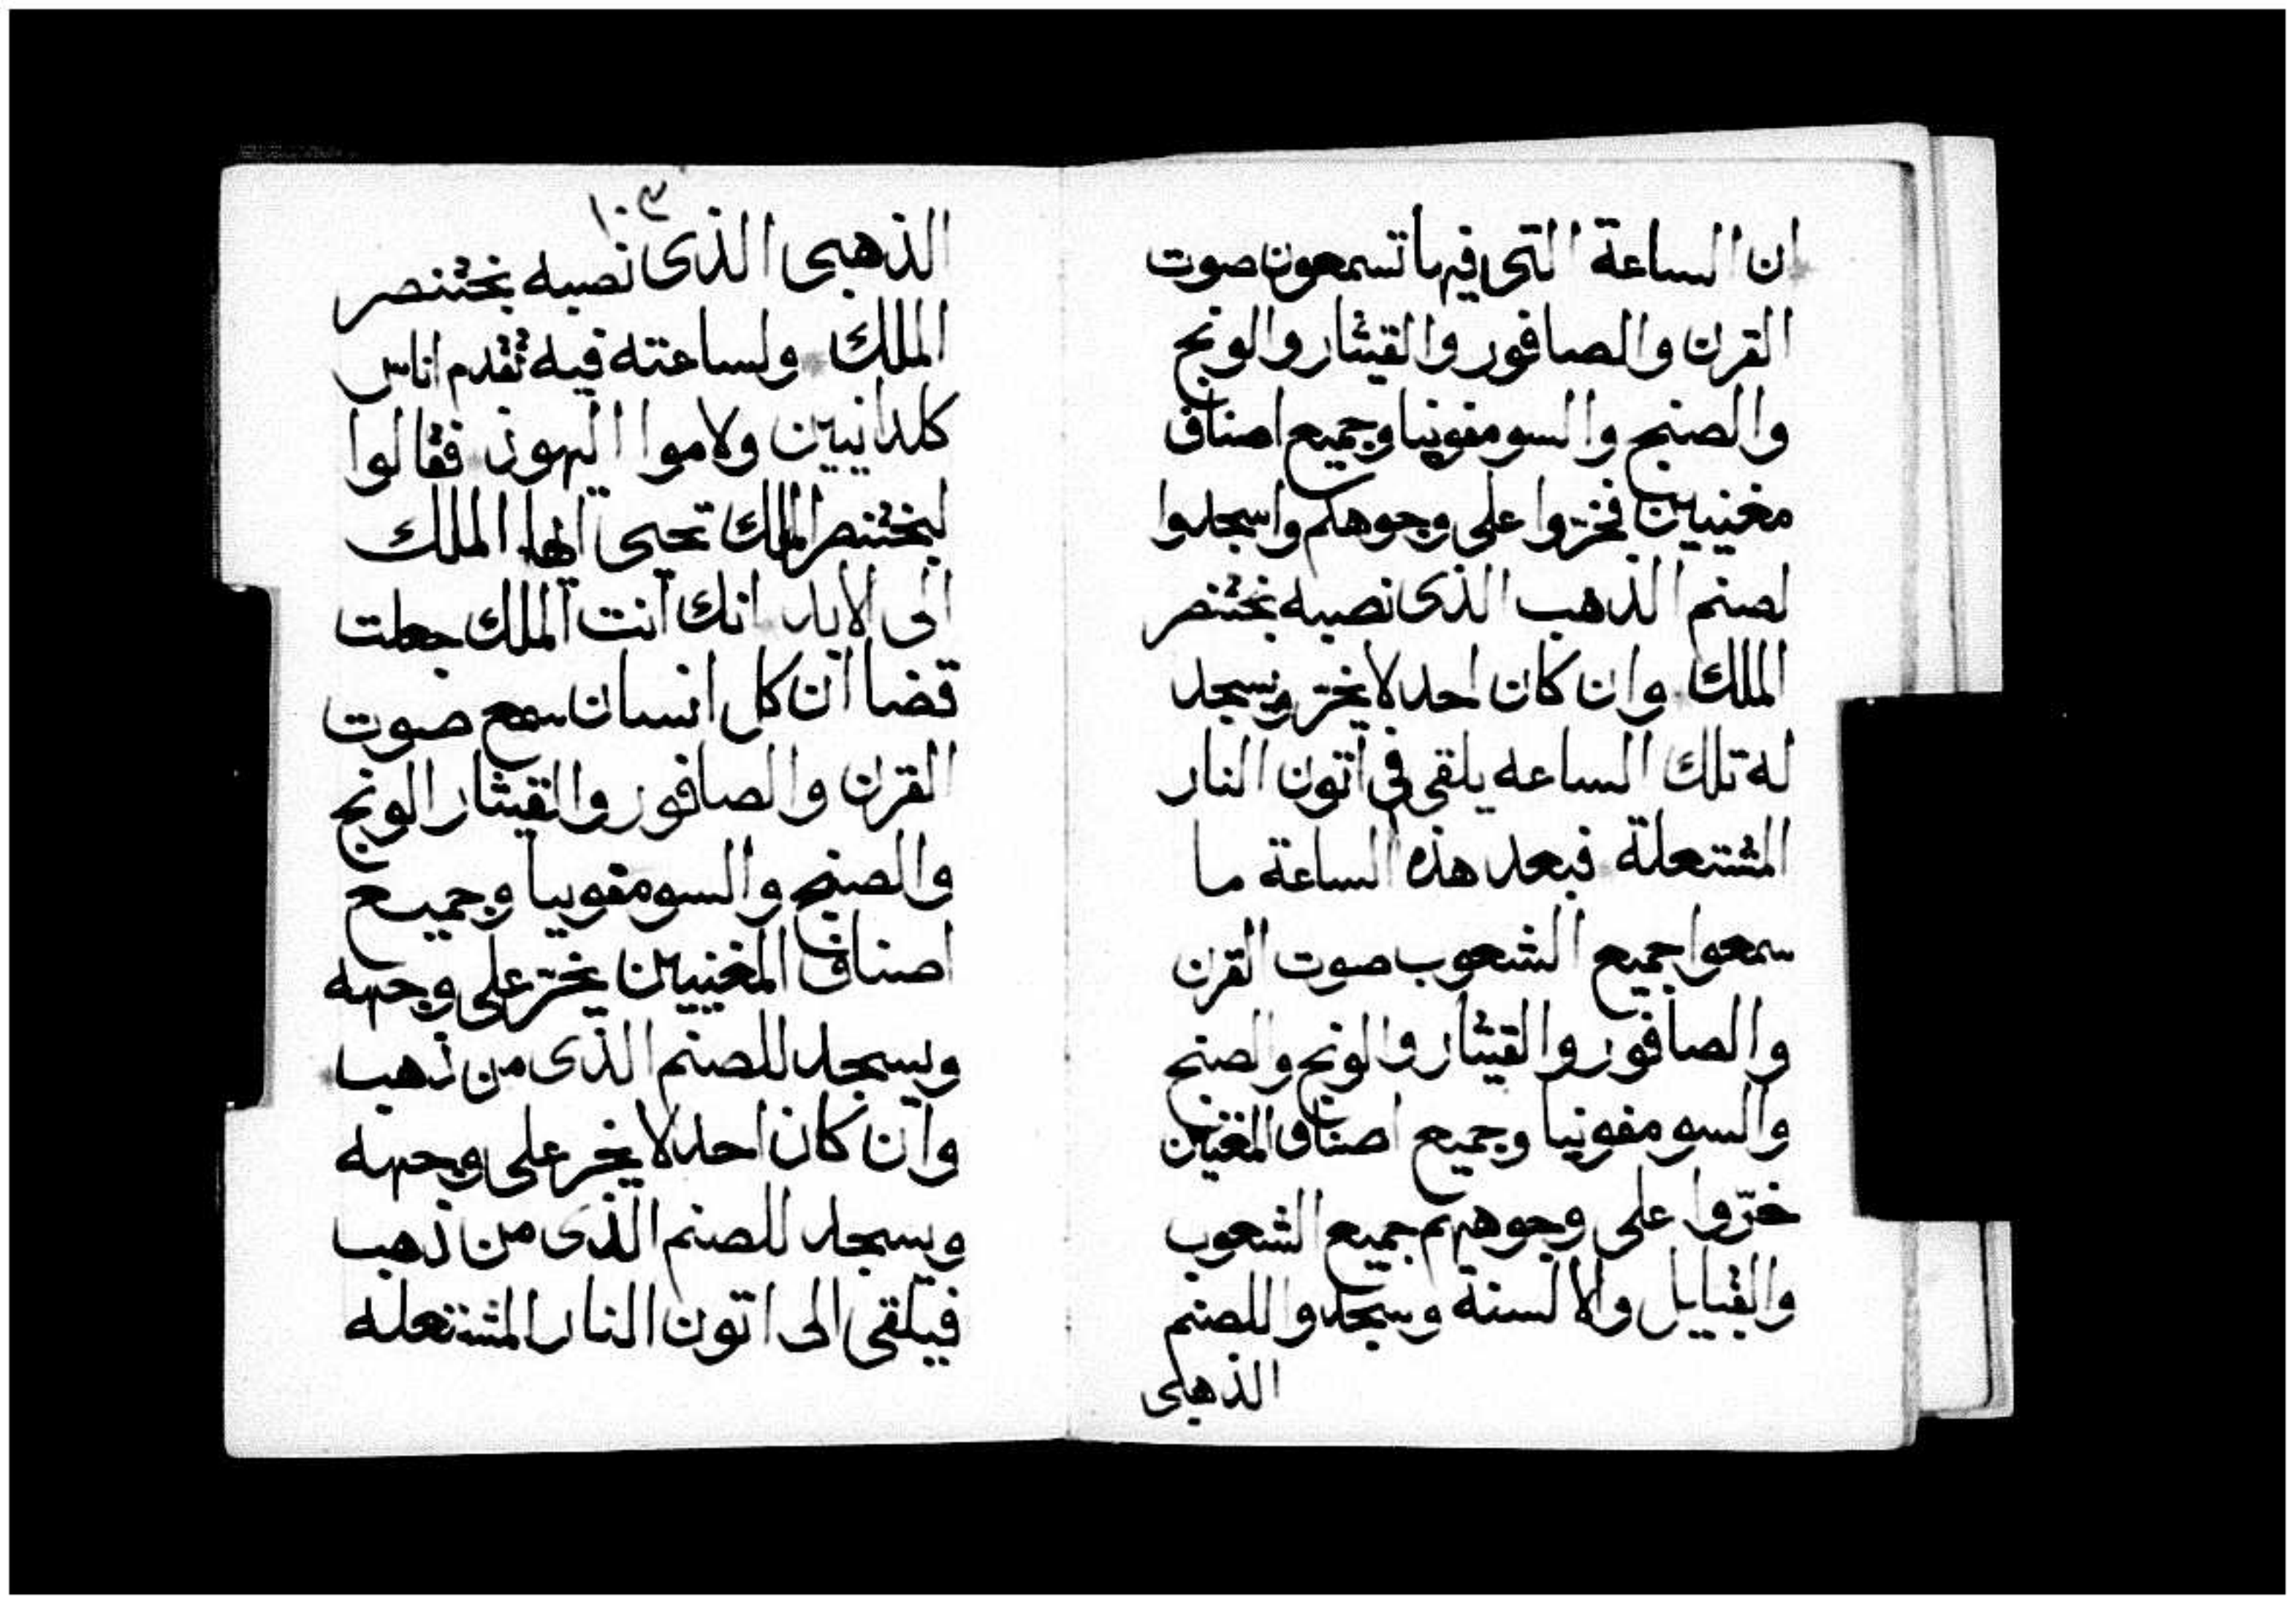 ان الساعة التى فيها تسمعون صوت
القرن والصافور والقيثار والونج
والصنج والسومفونيا وجميع اصناف
مغنيين فخرّوا على وجوهكم واسجدوا
لصنم الذهب الذى نصبه بختنصر
الملك وان كان احد لا يخرّ ويسجد
له تلك الساعه يلقى فى اتون النار
المشتعلة فبعد هذه الساعة ما
سمعوا جميع الشعوب صوت القرن
والصافور والقيثار والونج والصنج
والسومفونيا وجميع اصناف المغنيين
خرّوا على وجوههم جميع الشعوب
والقبايل والالسنة وسجدوا للصنم
الذهبى
١٠٣
الذهبى الذى نصبه بختنصر
الملك ولساعته فيه تقدم اناس
كلدانيين ولاموا اليهود فقالوا
لبختنصر الملك تحيى ايها الملك
الى الابد انك انت الملك جعلت
قضا ان كل انسان سمع صوت
القرن والصافور والقيثار الونج
والصنج والسومفونيا وجميع
اصناف المغنيين يخرّ على وجهه
ويسجد للصنم الذى من ذهب
وان كان احد لا يخر على وجهه
ويسجد للصنم الذى من ذهب
فيلقى الى اتون النار المشتعله